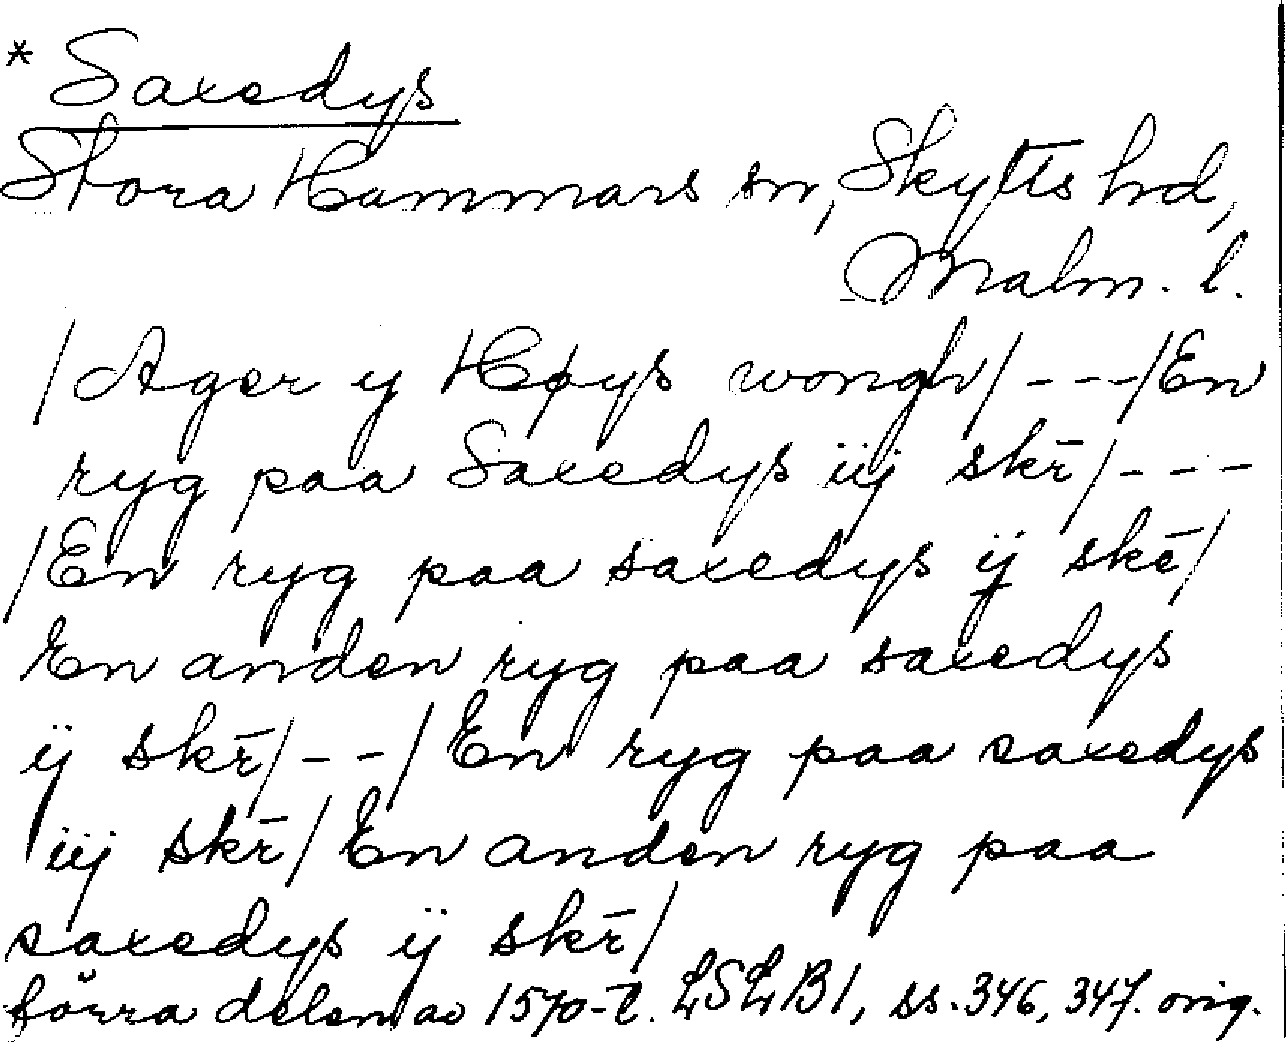 * Saxedys
Stora Hammars sn, Skytts hd,
Malm. l.
/Ager y Høys wongh/---/En
ryg paa Saxedys iij skr̄/---
/En ryg paa saxedys ij skr̄/
En anden ryg paa saxedys
ij skr̄/--/En ryg paa saxedys
iij skr̄/En anden ryg paa
saxedys ij skr̄/
förra delen av 1570-t. LSLB1, ss. 346, 347. orig.